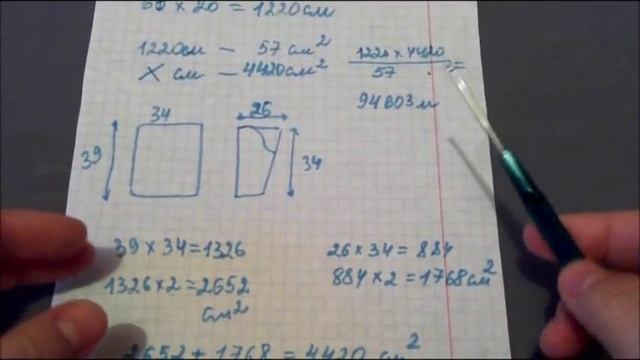 61 × 20 = 1220см
1220см – 57 см²
X см – 4420см²
1220 × 4420
57
=
94603м
34
39
26
34
39 × 34 = 1326
1326×2 = 2652
см²
26 × 34 = 884
884 × 2 = 1768 см²
2652 + 1768 = 4420 см²